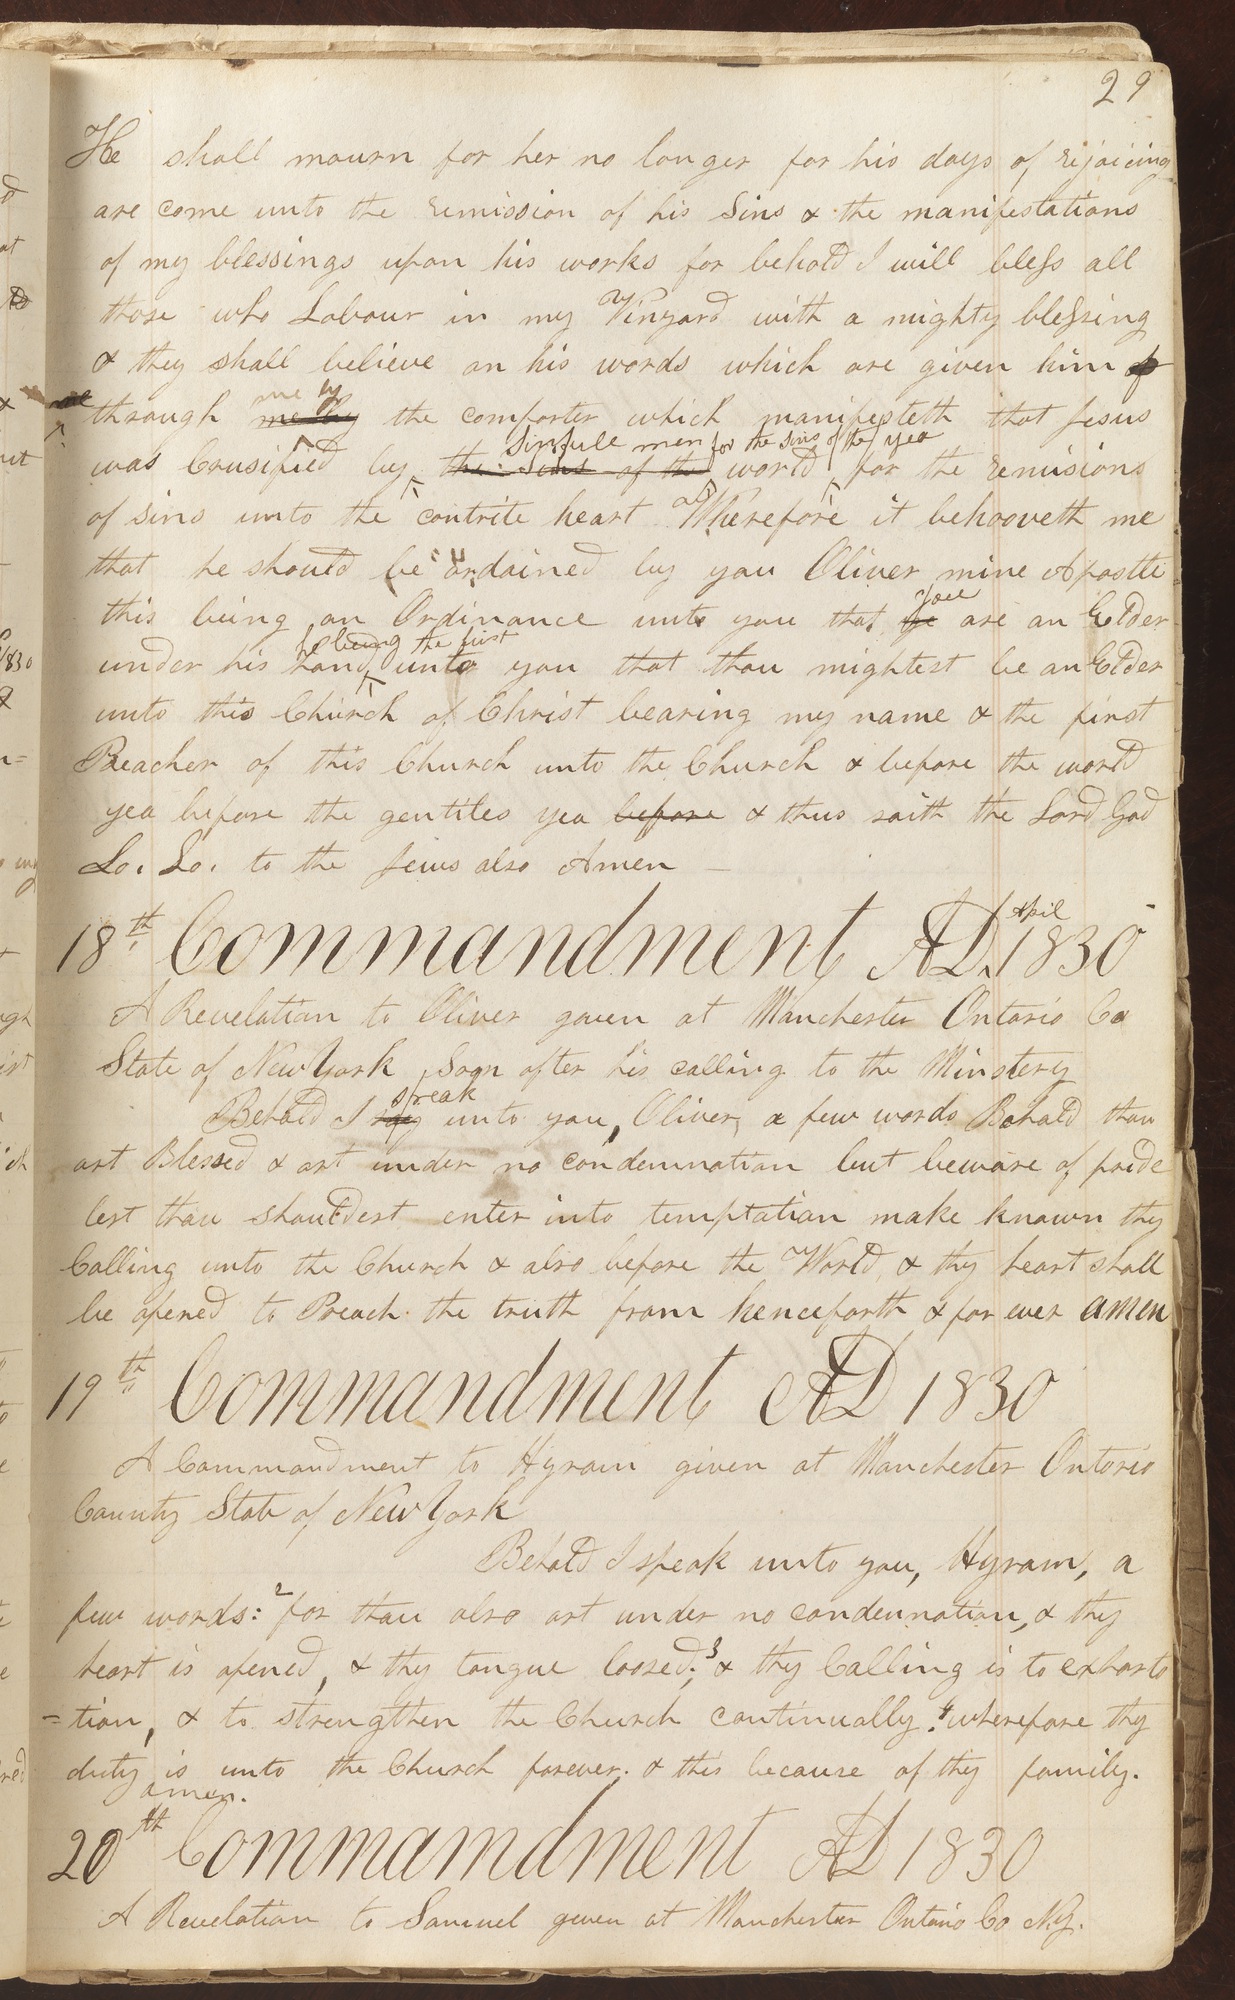 29
He shall mourn for her no longer for his days of rejoicing
are come unto the remission of his Sins & the manifestations
of my blessings upon his works for behold I will bless all
those who Labour in my Vinyard with a mighty blessing
& they shall believe on his words which are given him
me by
through me by the comforter which manifesteth that Jesus
sinfull men for the sins of the yea
was Crusified by the Sins of the world for the remisions
of sins unto the contrite heart Wherefore it behooveth me
that he should be ordained by you Oliver mine Apostle
you
this being an Ordinance unto you that ye are an Elder
he being the first
under his hand unto you that thou mightest be an Elder
unto this Church of Christ bearing my name & the first
Preacher of this Church unto the Church & before the world
yea before the gentiles yea before & thus saith the Lord God
Lo. Lo. to the Jews also Amen —
April
18th Commandment AD. 1830
A Revelation to Oliver gaven at Manchester Ontario Co
State of New York Soon after his calling to the Minstery
speak
Behold I say unto you, Oliver, a few words Behold thou
art Blessed & art under no condemnation but beware of pride
lest thou shouldest enter into temptation make known thy
Calling unto the Church & also before the World & thy heart shall
be opened to Preach the truth from henceforth & for ever amen
19th Commandment AD 1830
A Commandment to Hyram given at Manchester Ontario
County State of New York
Behold I speak unto you, Hyram, a
few words: 2 for thou also art under no condemnation, & thy
heart is opened, & thy tongue loosed; 3 & thy Calling is to exharta
=tion, & to strengthen the Church continually. 4 wherefore thy
duty is unto the Church forever. & this because of thy family.
amen.
20th Commamdment AD 1830
A Revelation to Samuel given at Manchester Ontario Co NY.